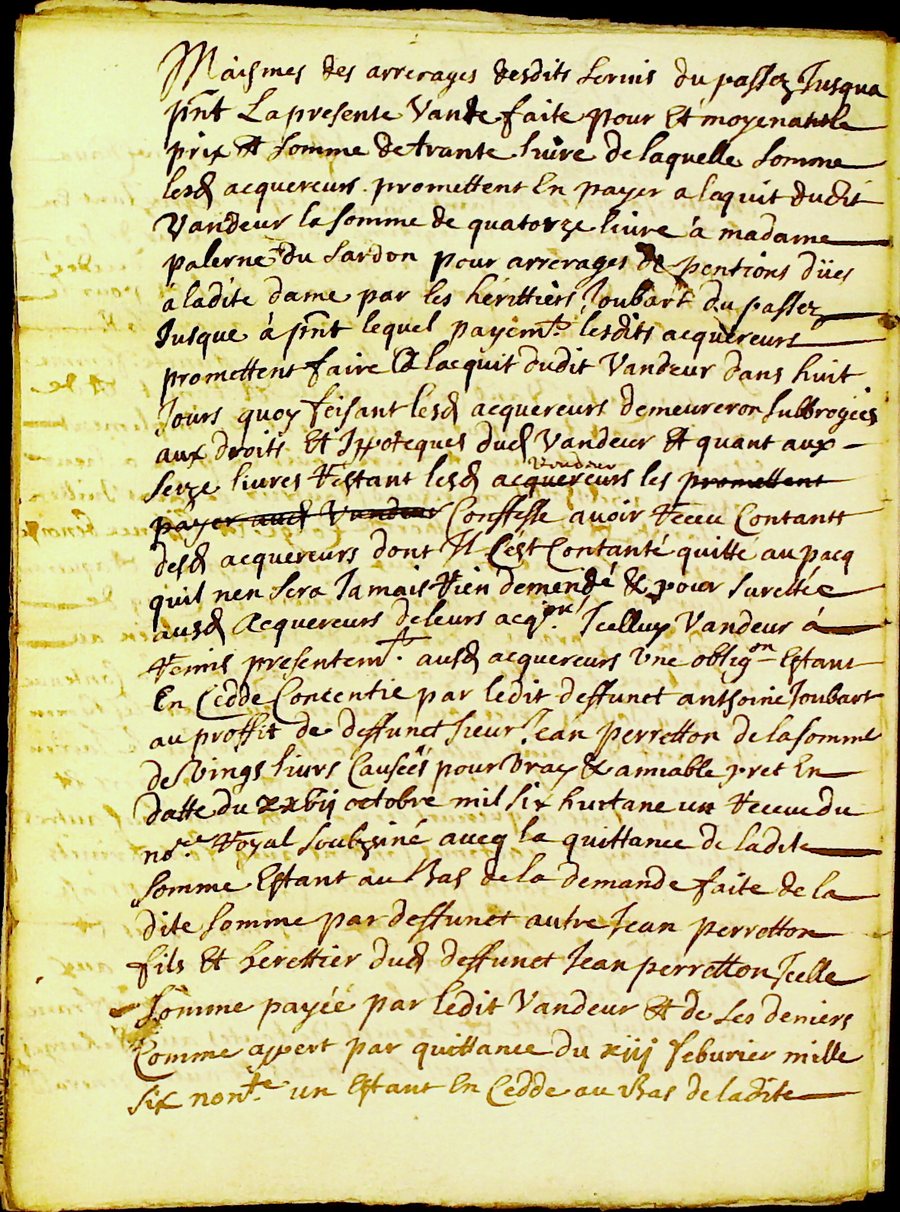 Maismes des arrerages desdits servis du passez Jusqua
pnt La presente Vande faite pour Et moyenant le
prix Et somme de trante livre de laquelle somme
lesd acquereurs promettent En payer a laquit dudit
Vandeur la somme de quatorze livre á madame
palerne du Sardon pour arrerages de pentions dües
á ladite dame par les hérittiers Joubart du passez
Jusque á pnt lequel payemt. lesdits acquereurs
promettent faire A lacquit dudit Vandeur dans huit
Jours quoy feisant lesd acquereurs demeureron subbrogées
aux droits Et Ipoteques dud Vandeur Et quant aux
seize livres Restant lesd acquereurs les promettent
Vandeur
payer aud Vandeur Conffesse avoir Receu Contantt
desd acquereurs dont Il C'est Contanté quitte au pacq
quil nen sera Jamais Rien demendé & pour surettée
ausd Acquereurs de leurs acqon. Icelluy Vandeur á
Remis presentemt. ausd acquereurs Une obligon Estant
En Cedde Concentie par ledit deffunct anthoine Joubart
au proffit de deffunct sieur Jean perretton de la somme
de Vings livrs Causéés pour Vray & amiable pret En
datte du xxvij octobre mil six huittane un Receue du
nore Royal soubzsiné avecq la quittance de ladite
somme Estant au Bas de la demande faite de la
dite somme par deffunct autre Jean perretton
fils Et herettier dud deffunct Jean perretton Icelle
somme payéé par ledit Vandeur Et de ses deniers
Comme appert par quittance du xiij feburier mille
six nonte. un Estant En Cedde au Bas de ladite